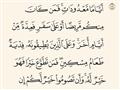 أَيَّامًا مَّعْدُودَٰتٍ فَمَن كَانَ
مِنكُم مَّرِيضًا أَوْ عَلَىٰ سَفَرٍ فَعِدَّةٌ مِّنْ
أَيَّامٍ أُخَرَ وَعَلَى ٱلَّذِينَ يُطِيقُونَهُۥ فِدْيَةٌ
طَعَامُ مِسْكِينٍ فَمَن تَطَوَّعَ خَيْرًا فَهُوَ
خَيْرٌ لَّهُۥ وَأَن تَصُومُوا۟ خَيْرٌ لَّكُمْ إِن